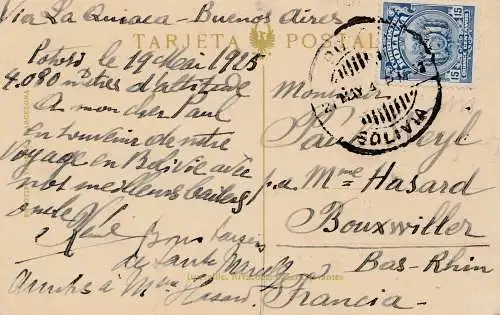 Via La Quiaca - Buenos Aires
TARJETA POSTAL
Potosi le 19 Mai 1925
4.080 mètres d'altitude
A mon cher Paul
En souvenir de notre
voyage en Bolivie avec
nos meilleurs baisers
oncle René
Bons baisers
de tante
amitiés à Mme Hasard
Monsieur
Paul
p.a. Mme Hasard
Bouxwiller
Bas-Rhin
Francia
15
15
BOLIVIA
MAY
BOLIVIA